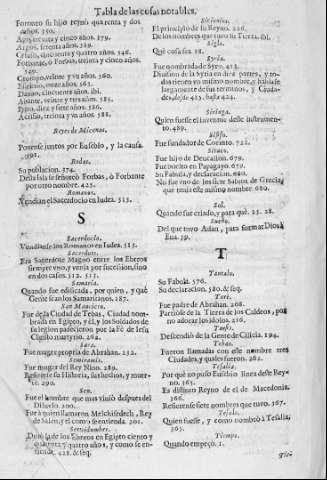 Tabla de las cosas notables.
Foroneo su hijo reynò quarenta y dos
años. 350.
años. 379.
Argos, setenta años. 319.
años. 346.
Forbanto, ò Forbas, treinta y cinco años.
349.
Crotopo, veinte y vn años. 360.
años. 361.
Danao, cincuenta años.
Abante, veinte y tres años. 585.
años. 586.
Acrisio, treinta y vn años. 588.
Reyes de Micenas.
Ponense juntos por Eusebio, y la causa.
Rodas.
Su poblacion. 374.
Desta Isla se señoreò Forbas, ò Forbante
por otro nombre. 425.
Romanos.
Vendian el Sacerdocio en Iudea. 513.
S
Sacerdocio.
Vendianse los Romanos en Iudea. 513.
Sacerdote.
Era Sacerdote Magno entre los Ebreos
siempre vno, y venia por succession, sino
en dos casos. 512. 515.
Samaria.
Quando fue edificada, por quien, y què
Gente eran los Samaritanos. 187.
San Mauricio.
Fue de la Ciudad de Tebas, Ciudad nom-
brada en Egipto, y èl, y los Soldados de
su legion padecieron por la Fè de Iesu
Christo martyrio. 264.
Sara.
Fue muger propria de Abrahan. 252.
Semiramis.
Fue muger del Rey Nino. 289.
Refierense su Historia, sus hechos, y muer-
te. 290.
Sen.
Fue el hombre que mas viuiò despues del
Diluvio. 200.
Fue à quien llamaron Melchisedech, Rey
de Salen, y el como se entienda. 201.
Servidumbre.
De la de los Ebreos en Egipto ciento y
quarenta y quatro años, y como se en-
tienda. 428. & seq.
Sicionia.
El principio de su Reyno. 226.
De los nombres que tuvo su Tierra. ibi.
Sigla.
Què cosa sea. 18.
Syria.
Fue nombrada de Syro. 413.
Diuision de la Syria en diez partes, y to-
das tienen vn mismo nombre, y hablase
largamente de sus terminos, y Ciuda-
des, desde 413. hasta 424.
Siringa.
Quien fuesse el inventor deste instrumen-
to. 489.
Sisifo.
Fue fundador de Corinto. 721.
Fue hijo de Deucalion. 679.
Fue buelto en Papagayo. 679.
Su Fabula, y declaracion. 680.
No fue vno de los siete Sabios de Grecia,
que tenia este mismo nombre. 680.
Sol.
Quando fue criado, y para què. 25. 28.
Sueño.
Del que tuvo Adan, para formar Dios à
Eua. 39.
T
Tantalo.
Su Fabula. 576.
Su declaracion. 580. & seq.
Tarè.
Fue padre de Abrahan. 208.
Partiòse de la Tierra de los Caldeos, por
no adorar los idolos. 216.
Descendiò de la Gente de Cilicia. 194.
Tebas.
Fueron llamadas con este nombre tres
Ciudades, y quales fueron. 262.
Tesalia.
Por què no puso Eusebio linea deste Rey-
no. 365.
Es distinto Reyno de el de Macedonia.
366.
Refierense siete nombres que tuvo. 367.
Tesalo.
Quien fuesse, y como nombrò à Tesalia.
365.
Tiempo.
Quando empeçò. 1.